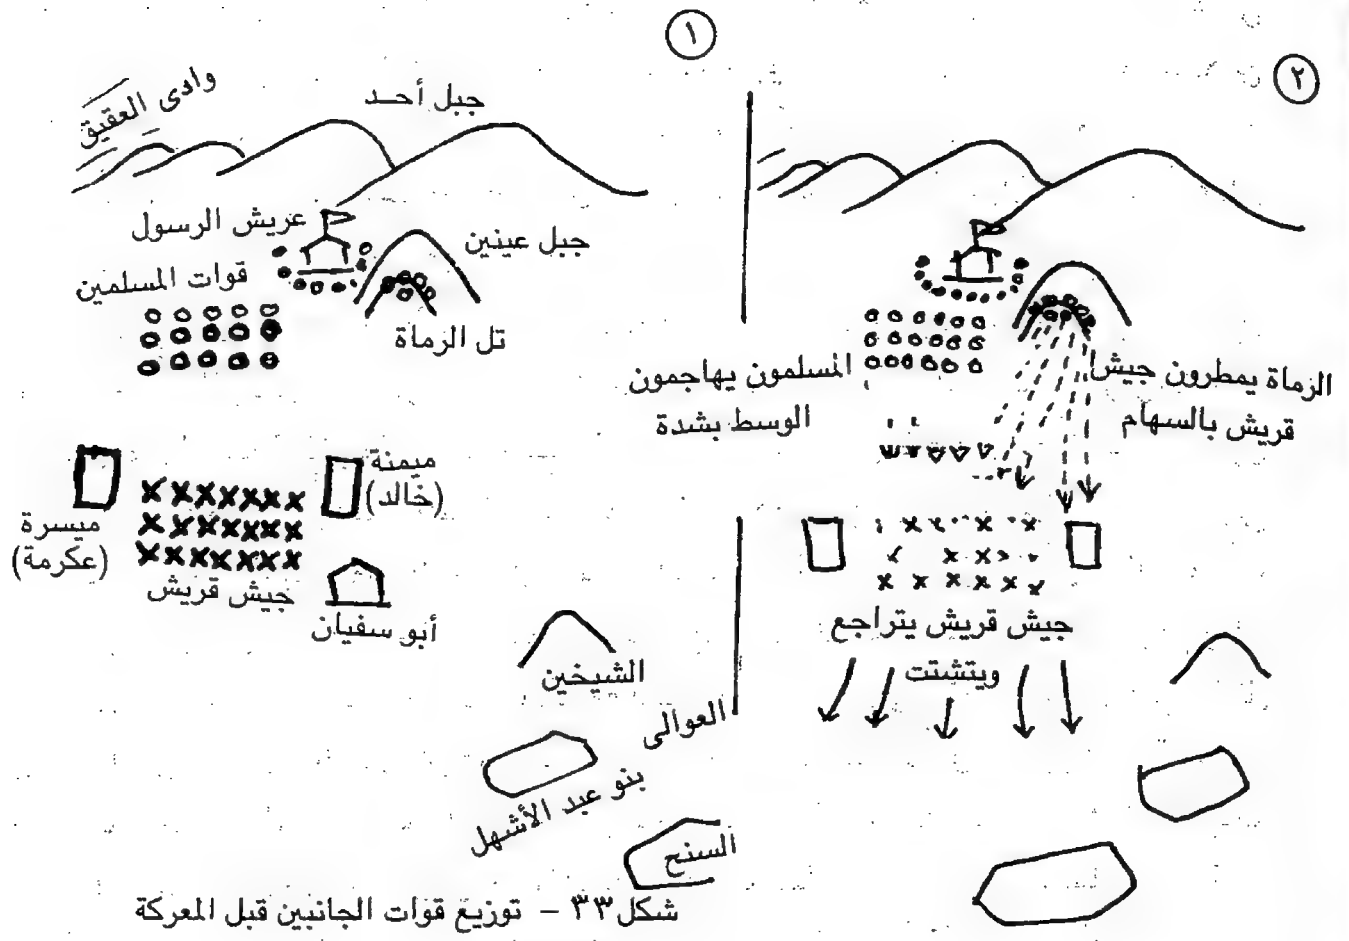 ١
وادى العقيق
جبل أحــد
عريش الرسول
جبل عينين
قوات المسلمين
تل الرماة
ميمنة
(خالد)
ميسرة
(عكرمة)
جيش قريش
أبو سفيان
الشيخين
العوالى
بنو عبد الأشهل
السنح
شكل ٣٣ – توزيع قوات الجانبين قبل المعركة
٢
المسلمون يهاجمون
الوسط بشدة
الرماة يمطرون جيش
قريش بالسهام
جيش قريش يتراجع
ويتشتت